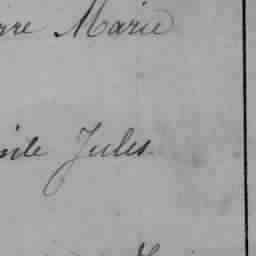 rre Marie
ile Jules